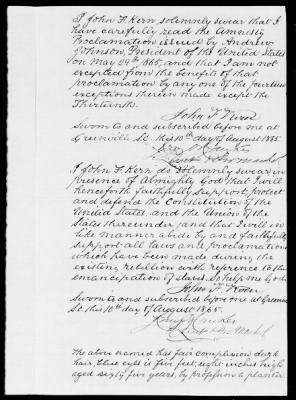 I John F. Kern solemnly swear that I
have carefully read the Amnesty
Proclamation issued by Andrew
Johnson, President of the United States
on May 29th 1865, and that I am not
excepted from the benefit of that
proclamation by any one of the fourteen
exceptions therein made except the
Thirteenth.
John F. Kern
Sworn to and subscribed before me at
Greenville S.C. this 10th day of August 1865.
I John F. Kern do solemnly swear in
presence of Almighty God that I will
henceforth faithfully support, protect
and defend the Constitution of the
United States, and the Union of the
States thereunder, and that I will in
like manner abide by and faithfully
support all laws and proclamations
which have been made during the
existing rebellion with reference to the
emancipation of slaves. So help me God.
John F. Kern
Sworn to and subscribed before me at Greenville
S.C. this 10th day of August 1865.
The above named has fair complexion, dark
hair, blue eyes is five feet, eight inches high
aged sixty five years, by profession a planter.